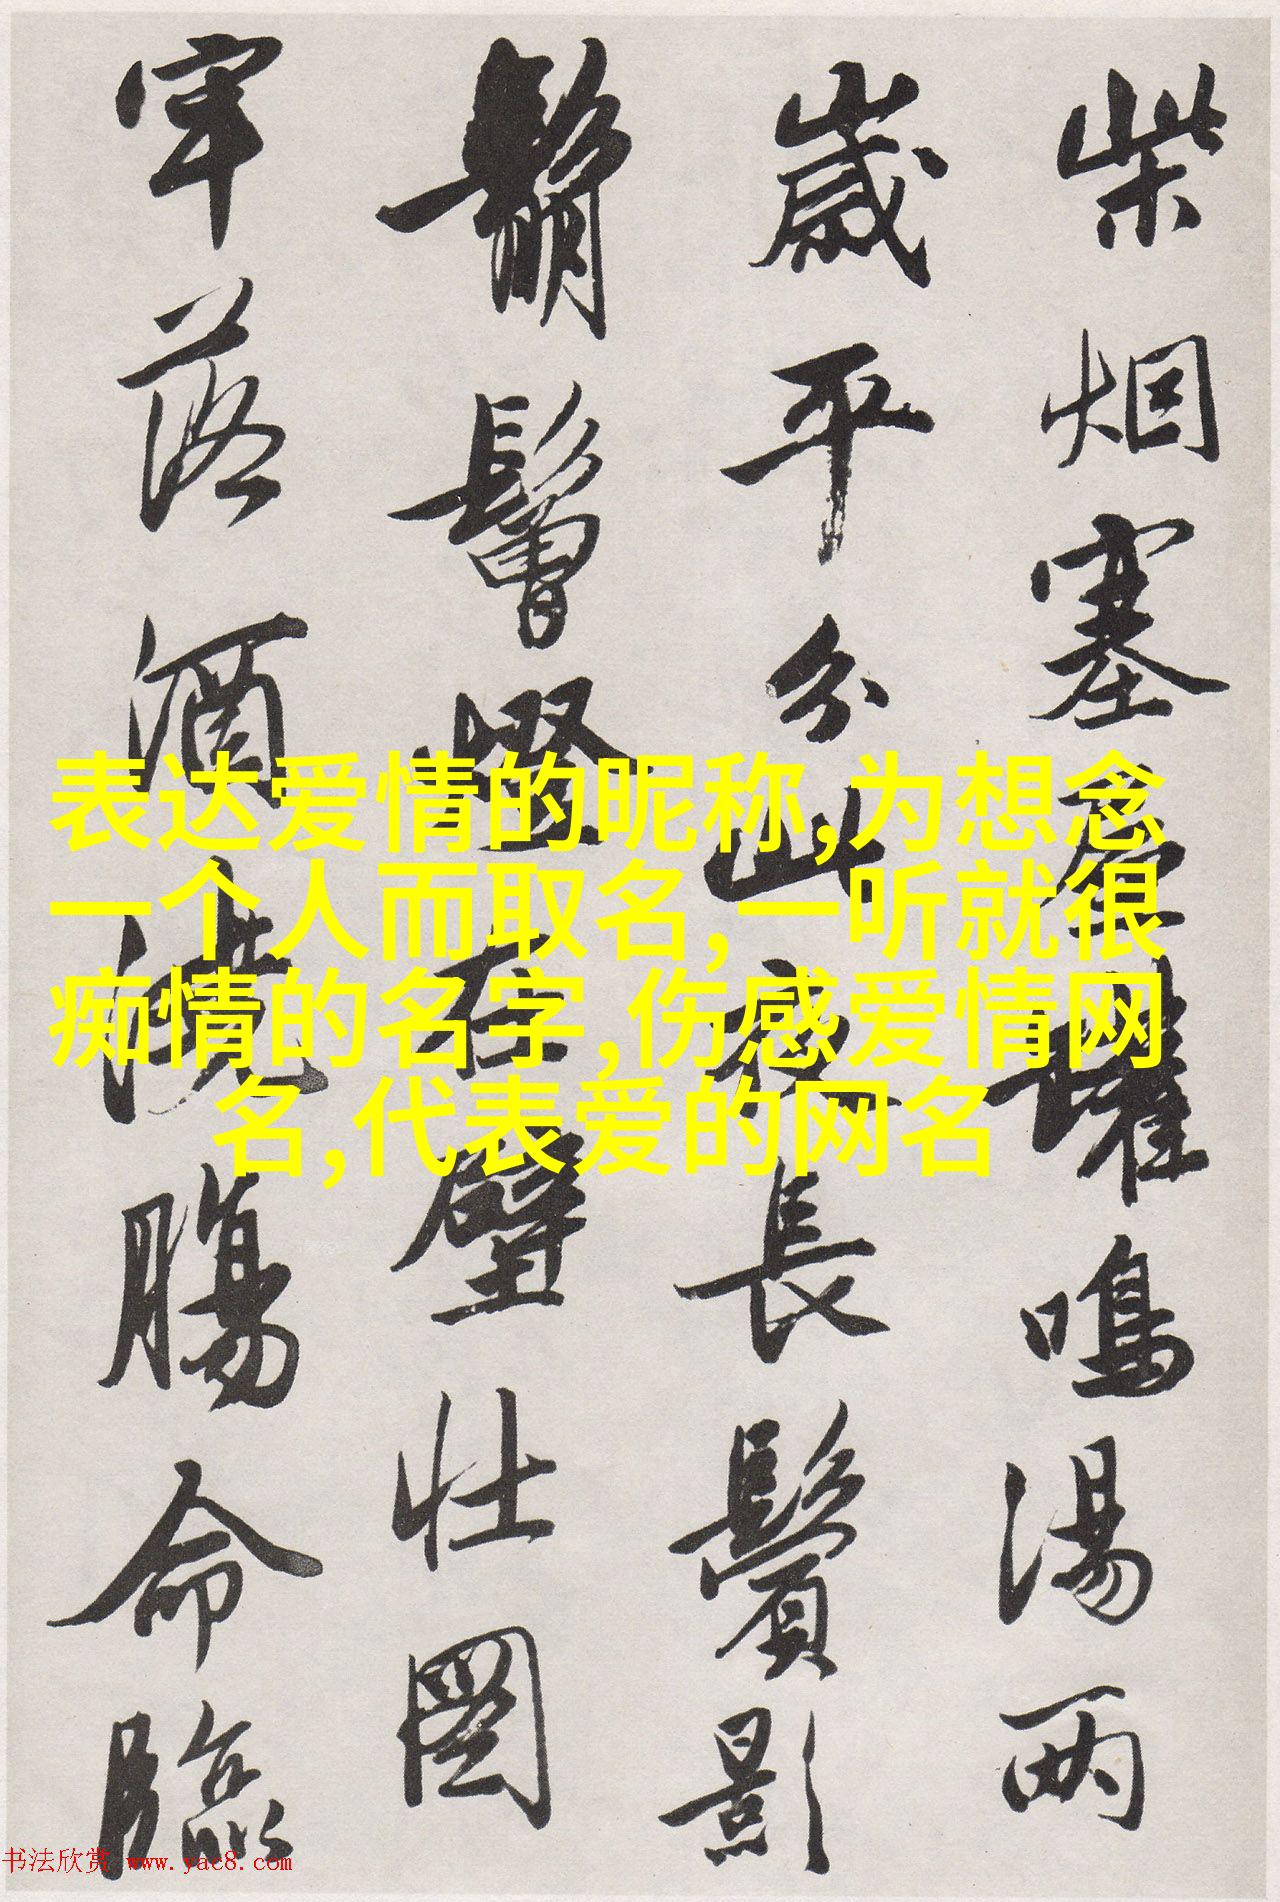 柴烟塞屋罐鳴湯两
歲平分此夜長鬢影
鬅鬙燈在壁壯圖
牢落酒澆腸命臨
表达爱情的昵称,为想念
一个人而取名,一听就很
痴情的名字,伤感爱情网
名,代表爱的网名
书法欣赏 www.yac8.com